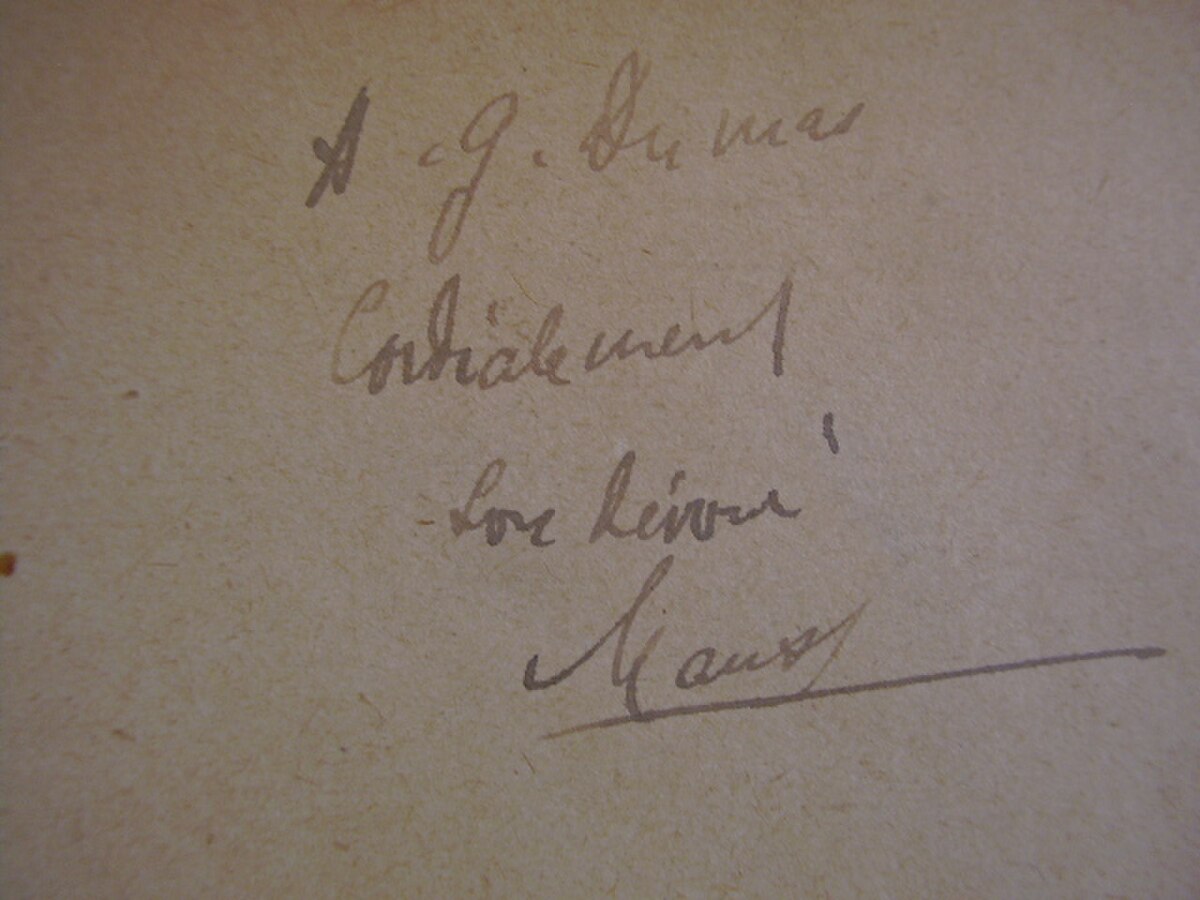 A. G. Dumas
Cordialement
Son dévoué
Mauss